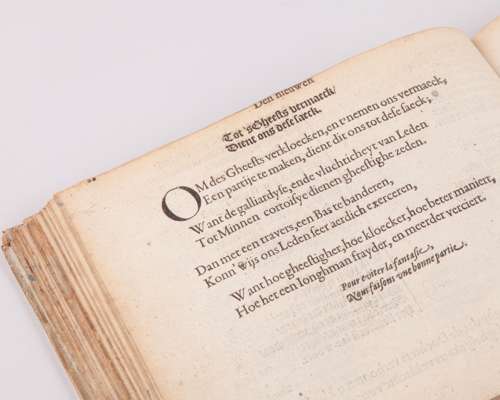 Den nieuwen
Tot 'sGheests vermaeck/
Dient ons dese saeck.
OM des Gheests verkloecken, en t'nemen ons vermaeck,
Een partije te maken, dient dit ons tot dese saeck;
Want de galliardyse, ende vluchticheyt van Leden
Tot Minnen cortoisye dienen gheestighe zeden.
Dan met een travers, een Bas te banderen,
Konn' wijs ons Leden seer aerdich exerceren,
Want hoe gheestigher, hoe kloecker, hoe beter maniert,
Hoe het een longhman frayder, en meerder verciert.
Pour eviter la fantasie,
Nous faisons une bonne partie.